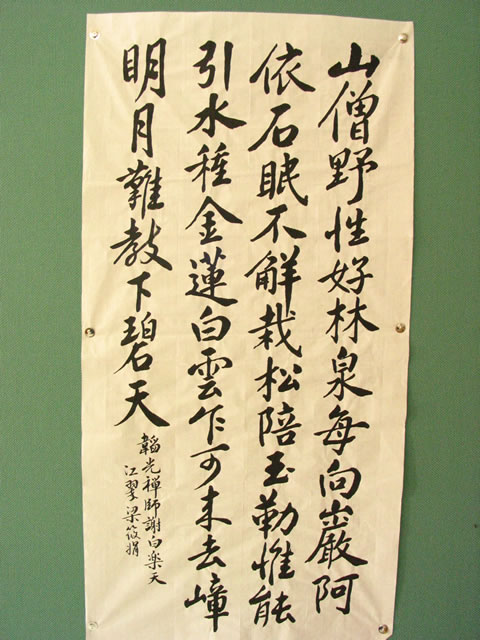 山僧野性好林泉每向巖阿
依石眠不解栽松陪玉勒惟能
引水種金蓮白雲乍可来去嶂
明月難教下碧天
韜光禅師謝白楽天
江翠梁筱娟